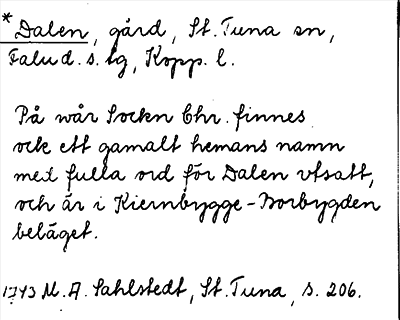 * Dalen, gård, St. Tuna sn,
Falu d.s. lg, Kopp. l.
På wår Sockn Chr. finnes
ock ett gamalt hemans namn
med fulla ord för Dalen vtsatt,
och är i Kiernbygge-Borbygden
beläget.
1743 M.A. Sahlstedt, St. Tuna, s. 206.